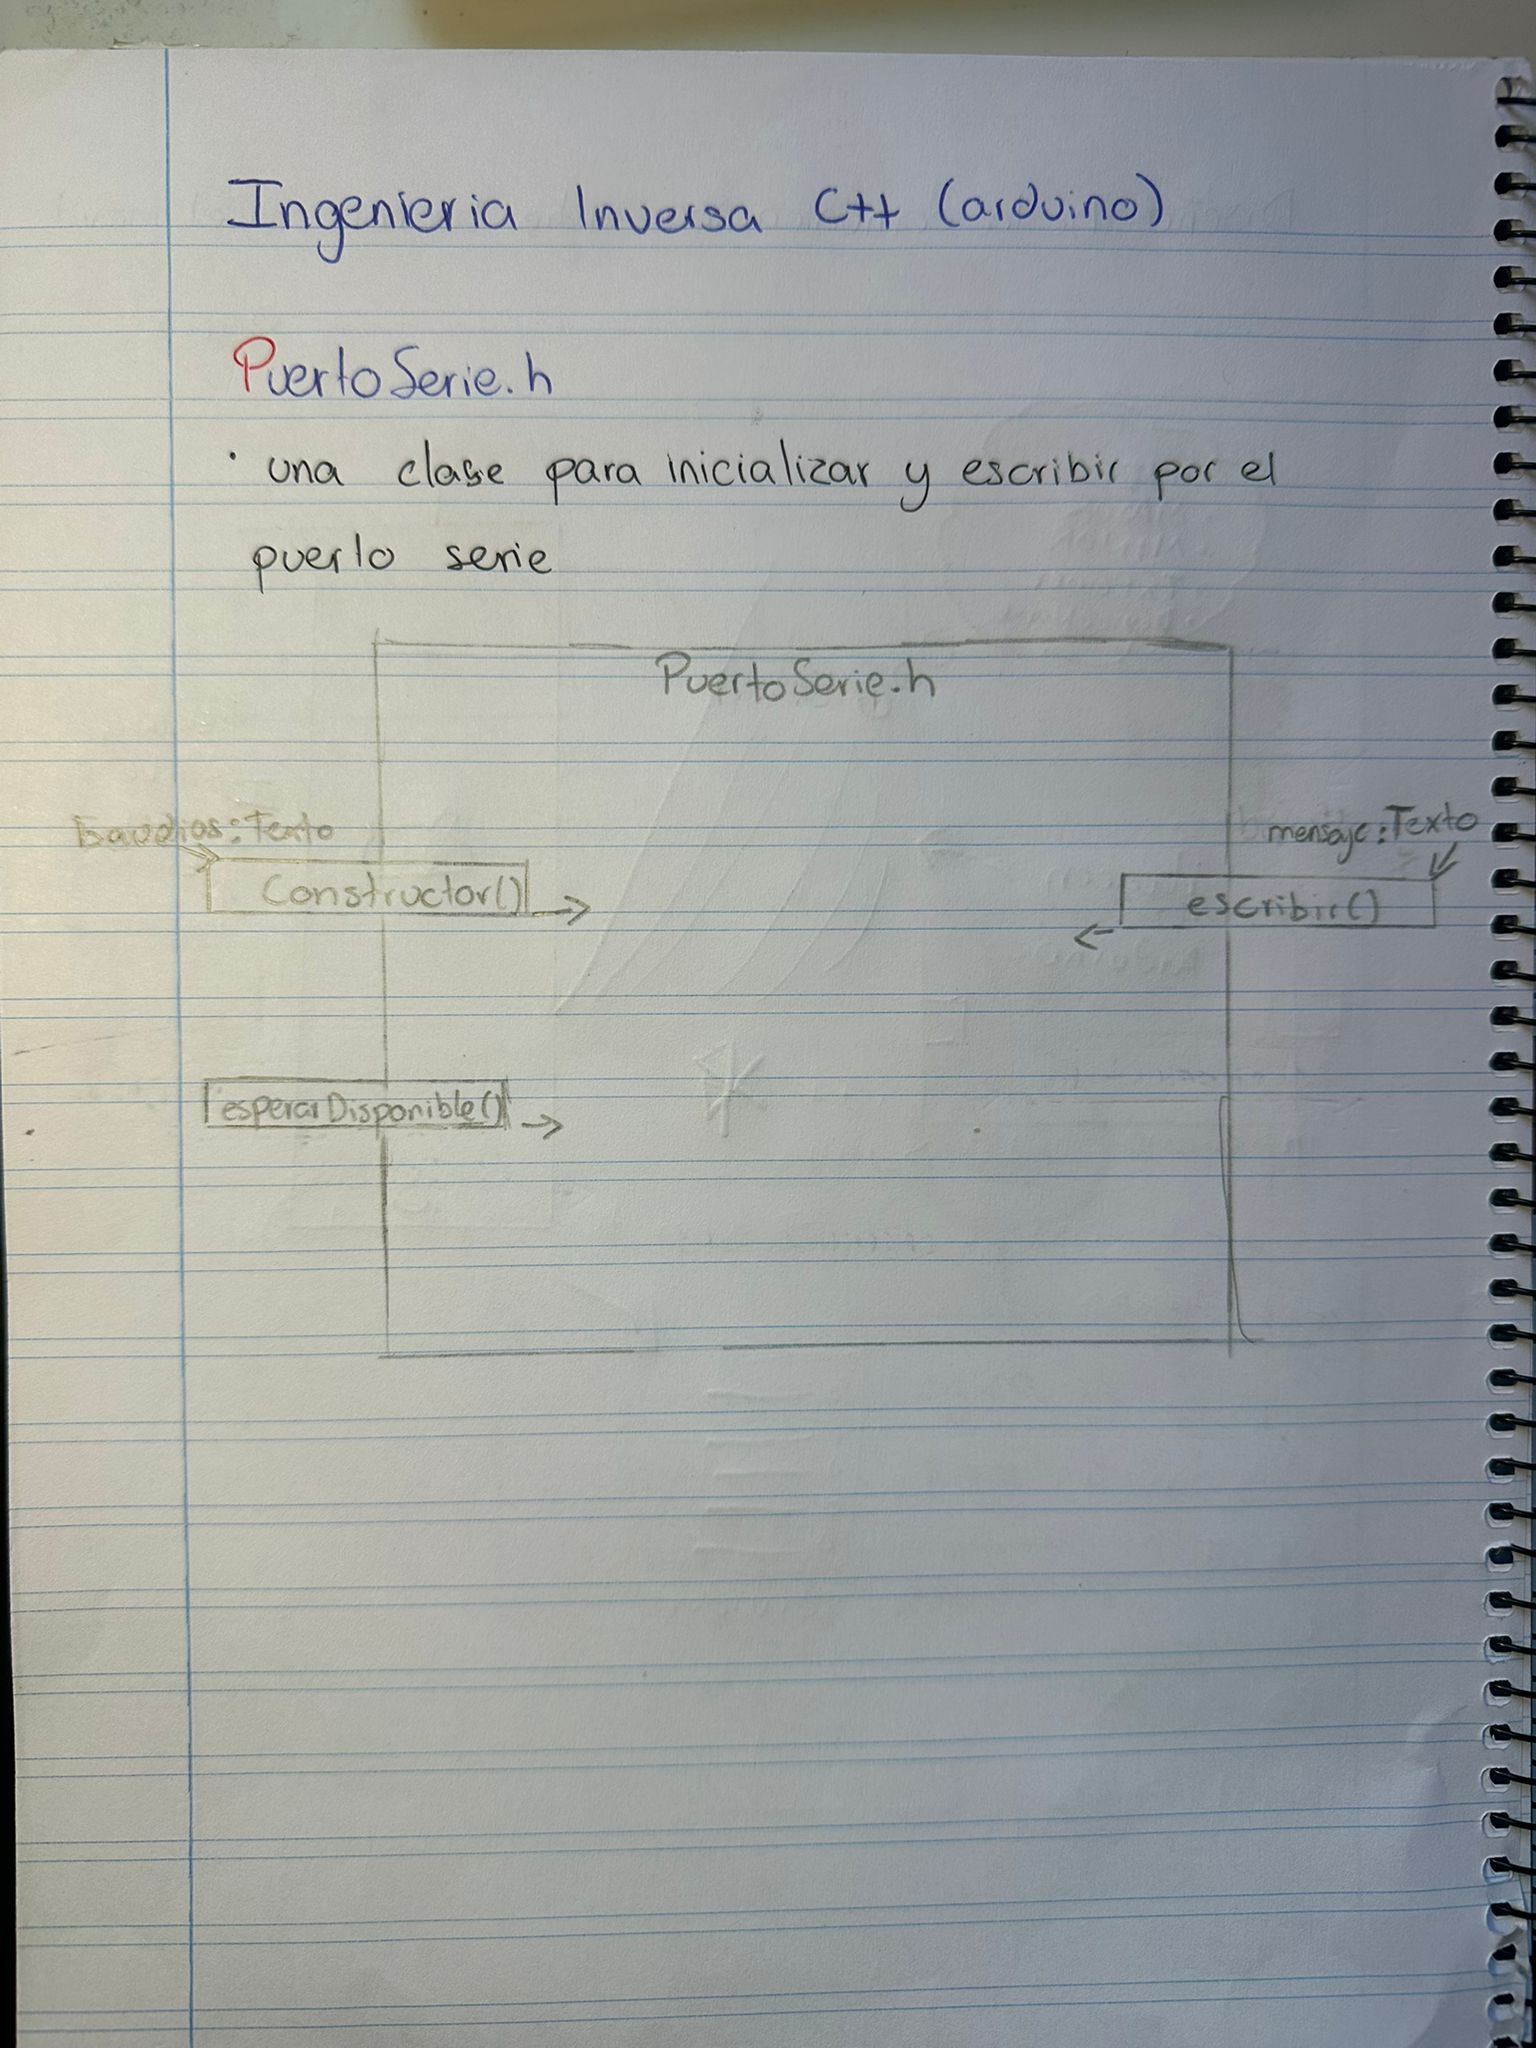 Ingenieria Inversa C++ (arduino)
PuertoSerie.h
· una clase para inicializar y escribir por el
puerto serie
PuertoSerie.h
baudios: Texto
mensaje: Texto
Constructor()
escribir()
esperarDisponible()